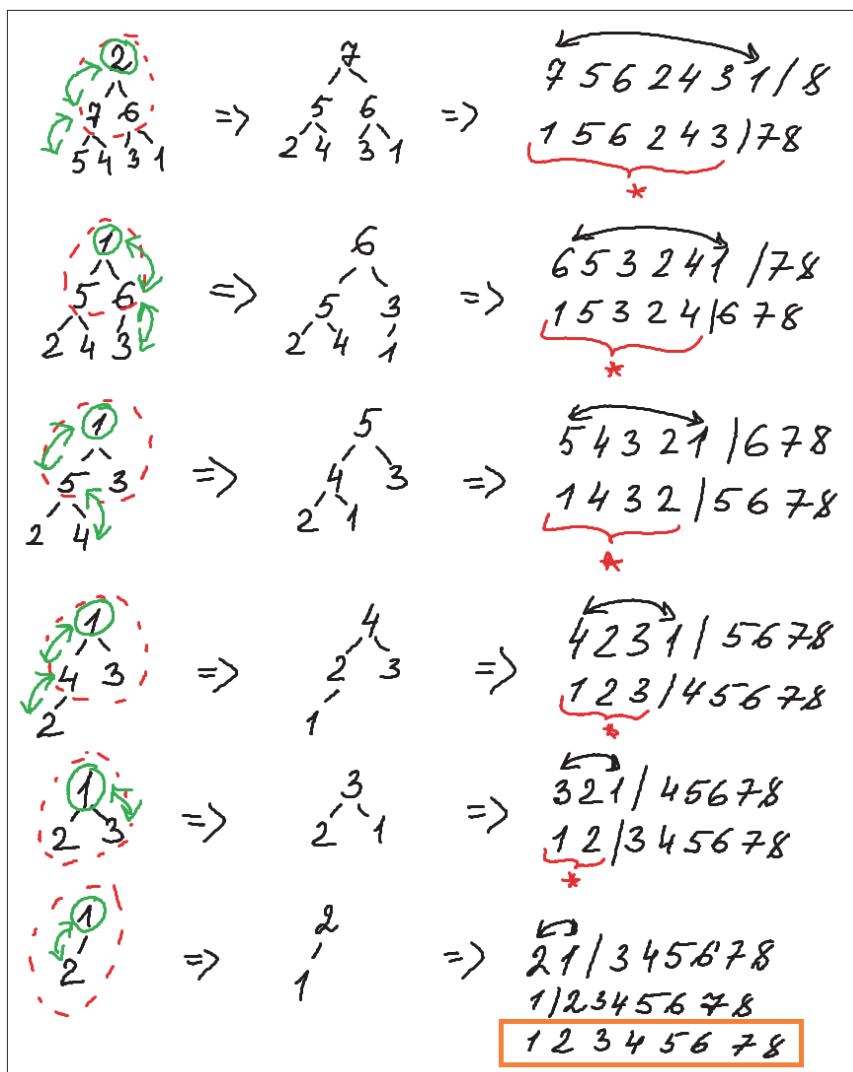 2
7 6
5 4 3 1
=>
7
5 6
2 4 3 1
=>
7 5 6 2 4 3 1 / 8
1 5 6 2 4 3 / 7 8
*
1
5 6
2 4 3
=>
6
5 3
2 4 1
=>
6 5 3 2 4 1 / 7 8
1 5 3 2 4 / 6 7 8
*
1
5 3
2 4
=>
5
4 3
2 1
=>
5 4 3 2 1 / 6 7 8
1 4 3 2 / 5 6 7 8
*
1
4 3
2
=>
4
2 3
1
=>
4 2 3 1 / 5 6 7 8
1 2 3 / 4 5 6 7 8
*
1
2 3
=>
3
2 1
=>
3 2 1 / 4 5 6 7 8
1 2 / 3 4 5 6 7 8
*
1
2
=>
2
1
=>
2 1 / 3 4 5 6 7 8
1 / 2 3 4 5 6 7 8
1 2 3 4 5 6 7 8